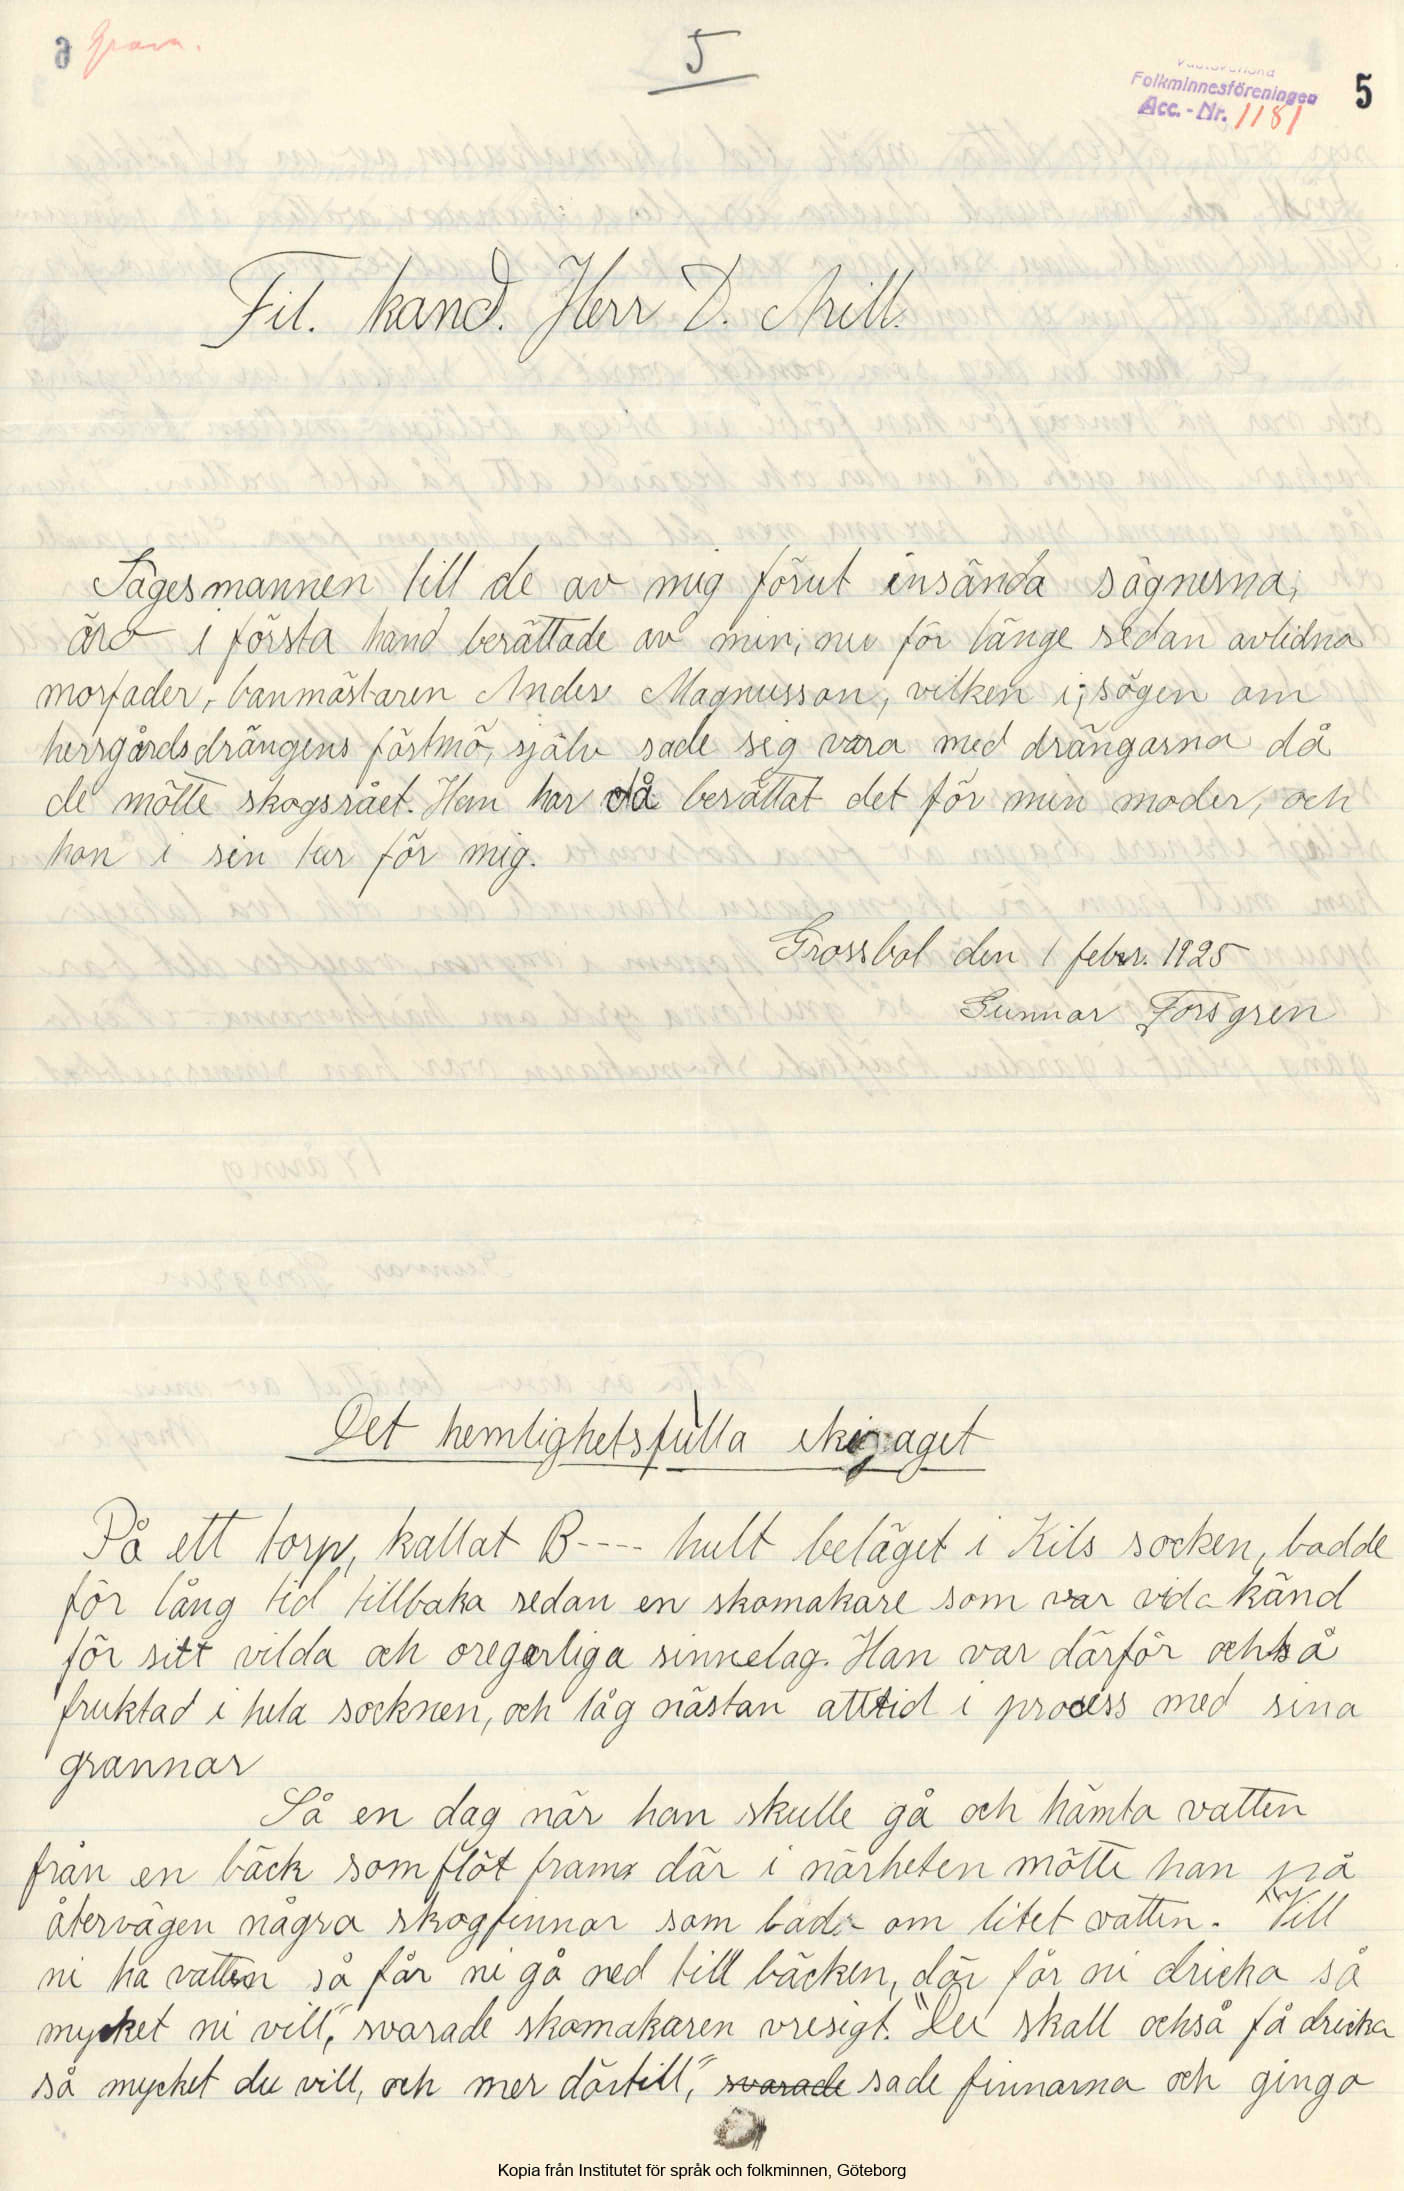 Grava.
5
Folkminnesföreningen
Acc.-Nr. 1181
5
Fil. kand. Herr D. Arill.
Sagesmannen till de av mig förut insända sägnerna,
äro i första hand berättade av min, nu för länge sedan avlidna
morfader, banmästaren Anders Magnusson, vilken i, sägen om
herrgårdsdrängens fästmö, själv sade sig vara med drängarna då
de mötte skogsrået. Han har då berättat det för min moder, och
hon i sin tur för mig.
Grossbol den 1 febr. 1925
Gunnar Forsgren
Det hemlighetsfulla ekipaget
På ett torp, kallat B---- hult beläget i Kils socken, bodde
för lång tid tillbaka sedan en skomakare som var vida känd
för sitt vilda och oregerliga sinnelag. Han var därför också
fruktad i hela socknen, och låg nästan alltid i process med sina
grannar
Så en dag när han skulle gå och hämta vatten
från en bäck som flöt fram där i närheten mötte han på
återvägen några skogfinnar som bad om litet vatten. "Vill
ni ha vatten så får ni gå ned till bäcken, där får ni dricka så
mycket ni vill", svarade skomakaren vresigt. "Du skall också få dricka
så mycket du vill, och mer därtill", svarade sade finnarna och gingo
Kopia från Institutet för språk och folkminnen, Göteborg